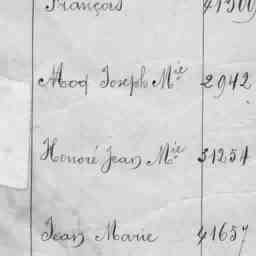 François 41309
Moq Joseph Mie 2942
Honoré Jean Mie 31254
Jean Marie 41657